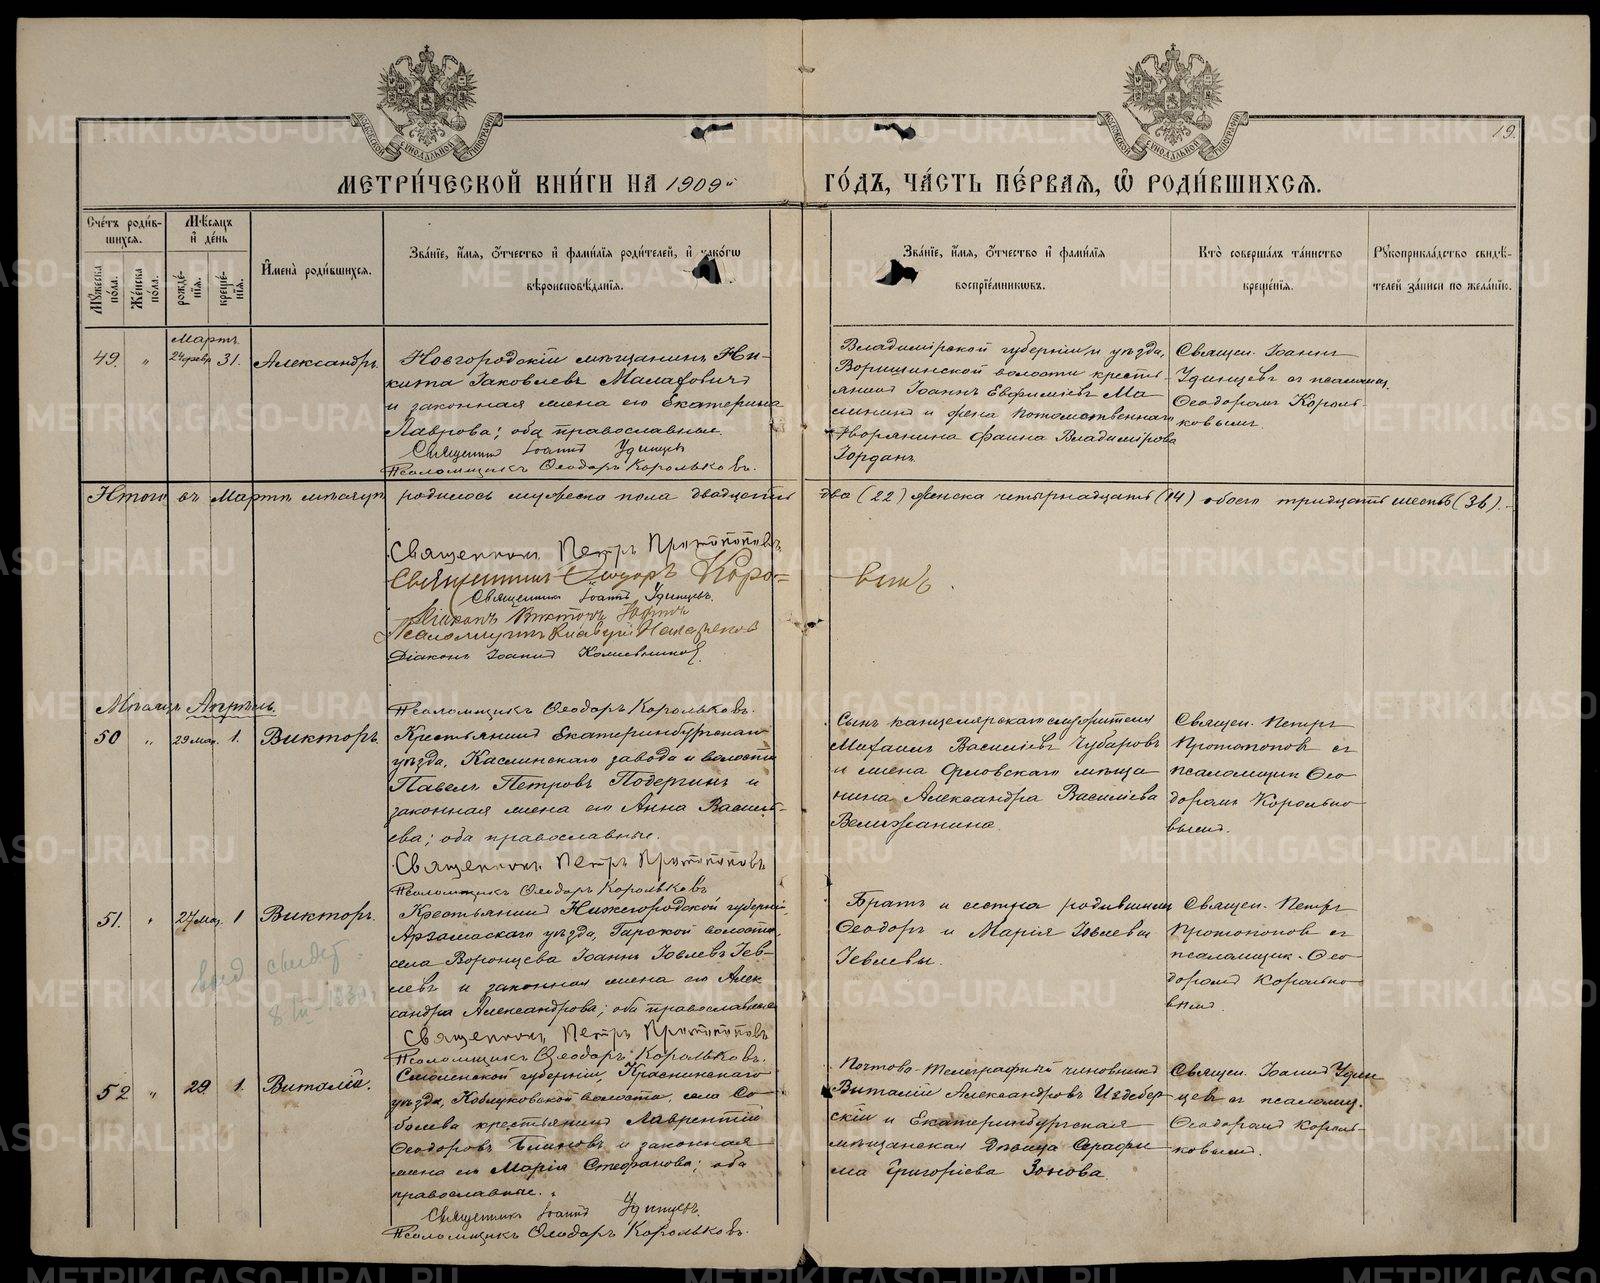 19.
МЕТРИ́ЧЕСКОЙ КНИ́ГИ НА 1909й ГО́ДЪ, ЧА́СТЬ ПЕ́РВАЯ, Ѡ҆ РОДИ́ВШИХСЯ.
Сче́тъ роди́вшихся.
Му́жеска по́ла.
Же́нска по́ла.
Мѣ́сяцъ и҆ де́нь
рожде́нія.
креще́нія.
И҆мена̀ роди́вшихся.
Зва́ніе, и҆́мя, о҆́тчество и҆ фами́лія роди́телей, и҆ како́гѡ вѣроисповѣ́данія.
Зва́ніе, и҆́мя, о҆́тчество и҆ фами́лія воспріе́мникѡвъ.
Кто̀ соверша́лъ та́инство креще́нія.
Рꙋкоприкла́дство свидѣ́телей за́писи по жела́нію.
Мартъ
49. " 24 февр. 31. Александръ.
Новгородскій мѣщанинъ Ни-
кита Іаковлевъ
и законная жена его Екатерина
Лаврова; оба православные.
Священникъ Іоаннъ Удинцевъ
Псаломщикъ Ѳеодоръ Корольковъ.
Владимірской губерніи и уѣзда,
волости кресть-
янинъ Іоаннъ Евфиміевъ Ма-
лининъ и жена потомственнаго
дворянина Фаина Владимірова
Іорданъ.
Священ. Іоаннъ
Удинцевъ съ псаломщ.
Ѳеодоромъ Король-
ковымъ.
Итого въ Мартѣ мѣсяцѣ родилось мужеска пола двадцать два (22) женска четырнадцать (14) обоего тридцать шесть (36).
Священникъ Петръ Протопоповъ
Священникъ Ѳеодоръ Коро-
Священникъ Іоаннъ Удинцевъ.
Діаконъ Викторъ
Псаломщикъ
Діаконъ Іоаннъ
Псаломщикъ Ѳеодоръ Корольковъ.
Мѣсяцъ Апрѣль.
50 " 29 мар. 1. Викторъ.
Крестьянинъ Екатеринбургскаго
уѣзда, Каслинскаго завода и волости
Павелъ Петровъ Подергинъ и
законная жена его Анна Василь-
ева; оба православные.
Священникъ Петръ Протопоповъ
Псаломщикъ Ѳеодоръ Корольковъ
Сынъ канцелярскаго служителя
Михаилъ Василіевъ Чубаровъ
и жена Орловскаго мѣща-
нина Александра Василіева
Вележанина.
Священ. Петръ
Протопоповъ съ
псаломщик. Ѳео-
доромъ Королько-
вымъ.
51. " 27 мар. 1 Викторъ.
Крестьянинъ Нижегородской губерніи,
Арзамасскаго уѣзда, волости,
села Воронцева Іоаннъ Іовлевъ Іев-
левъ и законная жена его Алек-
сандра Александрова; оба православные
Священникъ Петръ Протопоповъ
Псаломщикъ Ѳеодоръ Корольковъ.
Братъ и сестра родившагося
Ѳеодоръ и Марія Іовлевы
Іевлевы.
Священ. Петръ
Протопоповъ съ
псаломщик. Ѳео-
доромъ Королько-
вымъ
свидет.
8
52 " 29 1. Виталій.
Смоленской губерніи, Краснинскаго
уѣзда, волости, села Со-
болева крестьянинъ Лаврентій
Ѳеодоровъ Блиновъ и законная
жена его Марія Стефанова; оба
православные.
Священникъ Іоаннъ Удинцевъ.
Псаломщикъ Ѳеодоръ Корольковъ.
Почтово-телеграфный чиновникъ
Виталій Александровъ Издебер-
скій и Екатеринбургская
мѣщанская дѣвица Серафи-
ма Григоріева Зонова.
Священ. Іоаннъ Удин-
цевъ съ псаломщ.
Ѳеодоромъ Король-
ковымъ.
METRIKI.GASO-URAL.RU